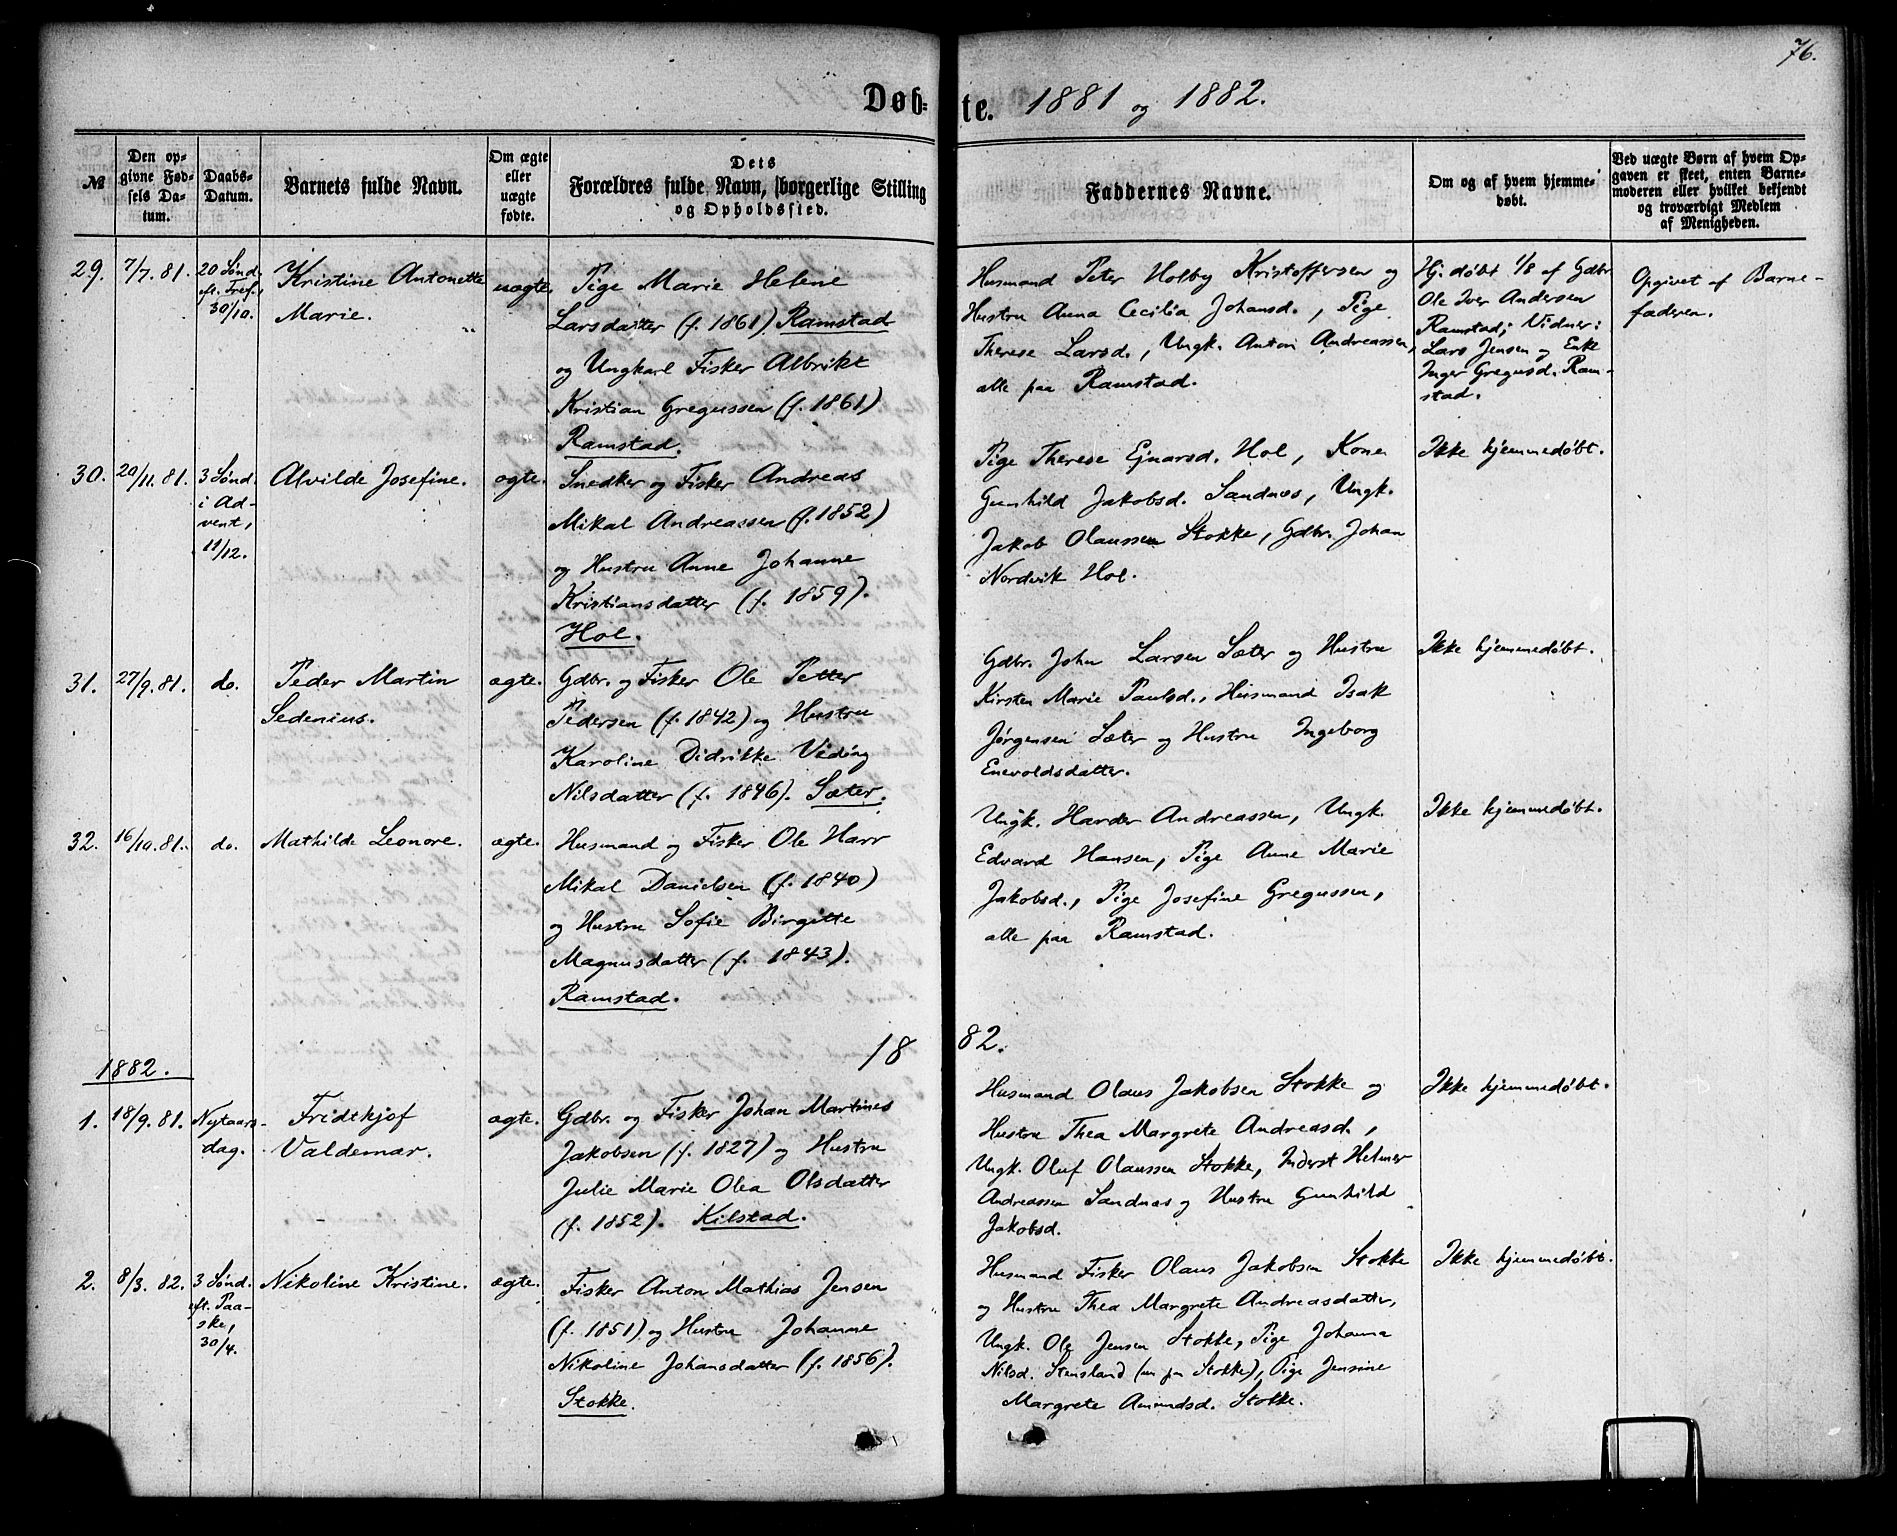 76.
Døbte. 1881 og 1882.
№
Den opgivne Fødsels Datum.
Daabs-Datum.
Barnets fulde Navn.
Om ægte eller uægte fødte.
Dets Forældres fulde Navn, borgerlige Stilling og Opholdssted.
Faddernes Navne.
Om og af hvem hjemmedøbt.
Ved uægte Børn af hvem Opgaven er skeet, enten Barnemoderen eller hvilket bekjendt og troværdigt Medlem af Menigheden.
29.
7/7. 81.
20 Sønd.
eft. Tref.,
30/10.
Kristine Antonette
Marie.
uægte.
Pige Marie Helene
Larsdatter (f. 1861) Ramstad
og Ungkarl Fisker Albrikt
Kristian Gregussen (f. 1861)
Ramstad.
Husmand Peter Holby Kristoffersen og
Hustru Anna Cecilia Johansd., Pige
Therese Larsd., Ungk. Anton Andreassen,
alle paa Ramstad.
Hj. døbt 1/8 af Gdbr.
Ole Iver Andersen
Ramstad; Vidner:
Lars Jensen og Enke
Inger Gregusd. Ram-
stad.
Opgivet af Barne-
faderen.
30.
29/11. 81.
3 Sønd.
i Ad-
vent,
11/12.
Alvilde Josefine.
ægte.
Snedker og Fisker Andreas
Mikal Andreassen (f. 1852)
og Hustru Anne Johanne
Kristiansdatter (f. 1859).
Hol.
Pige Therese Ejnarsd. Hol, Kone
Gunhild Jakobsd. Sandnes, Ungk.
Jakob Olaussen Stokke, Gdbr. Johan
Nordvik Hol.
Ikke hjemmedøbt.
31.
27/9. 81.
do.
Peder Martin
Sedenius.
ægte.
Gdbr. og Fisker Ole Petter
Pedersen (f. 1842) og Hustru
Karoline Didrikke Viding
Nilsdatter (f. 1846). Sæter.
Gdbr. John Larsen Sæter og Hustru
Kirsten Marie Paulsd., Husmand Isak
Jørgensen Sæter og Hustru Ingeborg
Enevoldsdatter.
Ikke hjemmedøbt.
32.
16/10. 81.
do.
Mathilde Leonore.
ægte.
Husmand og Fisker Ole Harr
Mikal Danielsen (f. 1840)
og Hustru Sofie Birgitte
Magnusdatter (f. 1843).
Ramstad.
Ungk. Harder Andreassen, Ungk.
Edvard Hansen, Pige Anne Marie
Jakobsd., Pige Josefine Gregussen,
alle paa Ramstad.
Ikke hjemmedøbt.
1882.
1882.
1.
18/9. 81.
Nytaars-
dag.
Fridtkjof
Valdemar.
ægte.
Gdbr. og Fisker Johan Martines
Jakobsen (f. 1827) og Hustru
Julie Marie Olea Olsdatter
(f. 1852). Kilstad.
Husmand Olaus Jakobsen Stokke og
Hustru Thea Margrete Andreasd.,
Ungk. Oluf Olaussen Stokke, Inderst Helmer
Andreassen Sandnes og Hustru Gunhild
Jakobsd.
Ikke hjemmedøbt.
2.
8/3. 82.
3 Sønd.
eft. Paa-
ske,
30/4.
Nikoline Kristine.
ægte.
Fisker Anton Mathias Jensen
(f. 1851) og Hustru Johanne
Nikoline Johansdatter (f. 1856).
Stokke.
Husmand Fisker Olaus Jakobsen Stokke
og Hustru Thea Margrete Andreasdatter,
Ungk. Ole Jensen Stokke, Pige Johanna
Nilsd. Stensland (nu paa Stokke), Pige Jensine
Margrete Amundsd. Stokke.
Ikke hjemmedøbt.